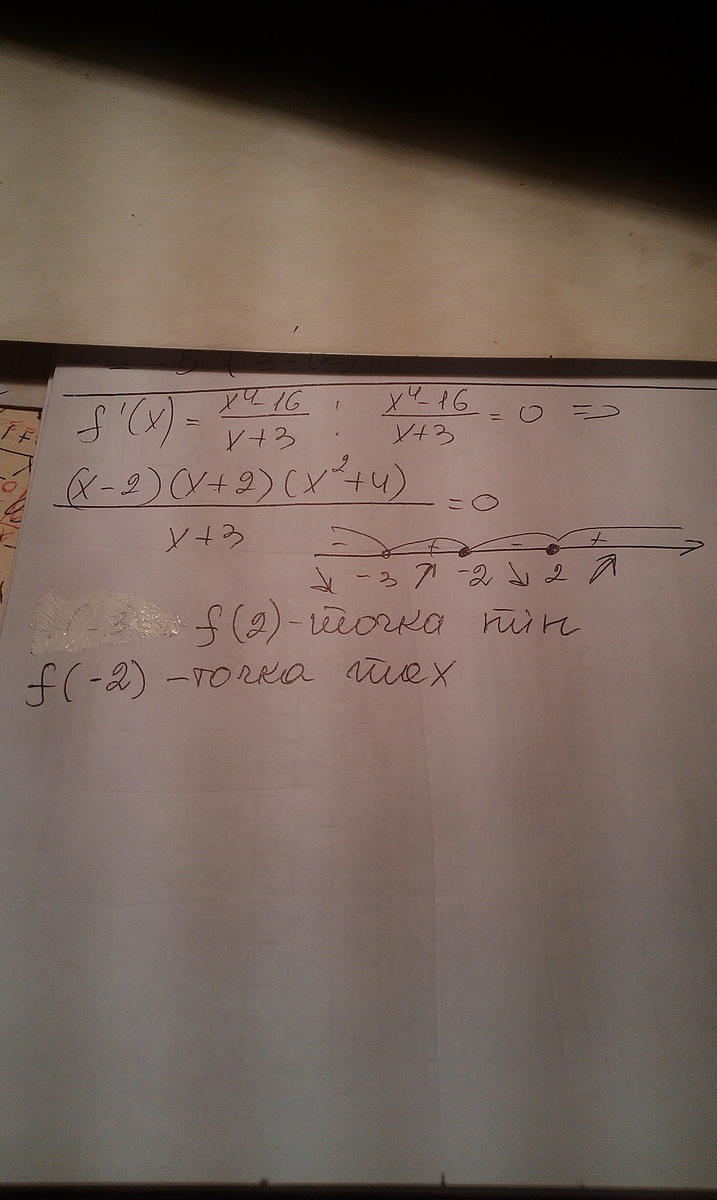 f'(x) = x⁴-16 / x+3 ; x⁴-16 / x+3 = 0 =>
(x-2)(x+2)(x²+4) / x+3 = 0
- + - +
↘ -3 ↗ -2 ↘ 2 ↗
f(2) - точка min
f(-2) - точка max